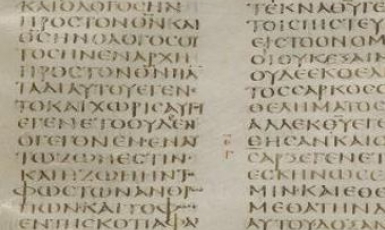 ΚΑΙΟΛΟΓΟCΗΝ
ΠΡΟCΤΟΝΘΝΚΑΙ
ΘCΗΝΟΛΟΓΟCΟΥ
ΤΟCΗΝΕΝΑΡΧΗ
ΠΡΟCΤΟΝΘΝΠΑ
ΤΑΔΙΑΥΤΟΥΕΓΕΝ
ΤΟΚΑΙΧΩΡΙCΑΥΤΟΥ
ΕΓΕΝΕΤΟΟΥΔΕΝ
ΟΓΕΓΟΝΕΝΕΝΑΥ
ΤΩΖΩΗΕCΤΙΝ·
ΚΑΙΗΖΩΗΗΝΤΟ
ΦΩCΤΩΝΑΝΘΡΩ
ΠΩΝΚΑΙΤΟΦΩC
ΕΝΤΗCΚΟΤΙΑΦΑΙ
ΤΕΚΝΑΘΥΓΕ
ΤΟΙCΠΙCΤΕΥ
ΕΙCΤΟΟΝΟΜ
ΟΙΟΥΚΕΞΑΙΜ
ΟΥΔΕΕΚΘΕΛ
ΤΟCCΑΡΚΟC
ΘΕΛΗΜΑΤΟC
ΑΛΛΕΚΘΥΕΓΕ
ΘΗCΑΝΚΑΙΟ
CΑΡΞΕΓΕΝΕΤ
ΕCΚΗΝΩCΕ
ΜΙΝΚΑΙΕΘΕ
ΜΕΘΑΤΗΝΔ
ΑΥΤΟΥΔΟΞΑΝ